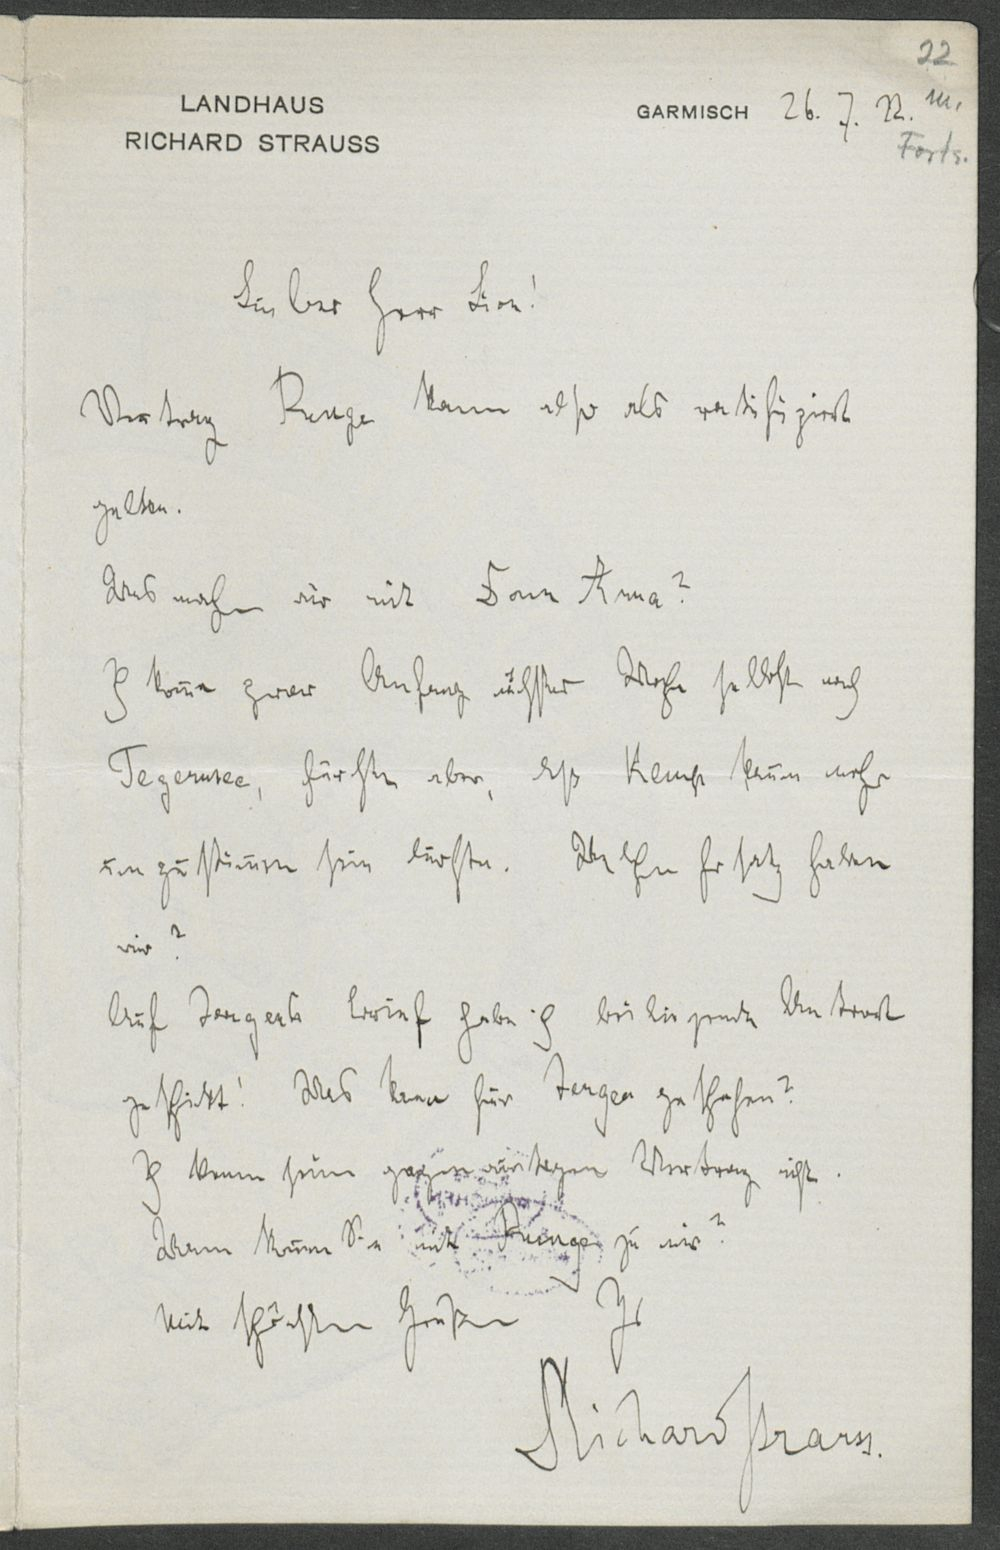 22
LANDHAUS
RICHARD STRAUSS
GARMISCH 26. 7. 22.
Forts.
Lieber Herr Lion!
Vertrag Runge kann also als ratifiziert
gelten.
Was machen wir mit Donna Anna?
Ich komme zwar Anfang nächster Woche selbst nach
Tegernsee, fürchte aber, daß Kemp kaum mehr
umzustimmen sein dürfte. Welchen Ersatz haben
wir?
Auf Zengers Brief habe ich beiliegende Antwort
geschickt! Was kann für geschehen?
Ich kenne seinen gegenwärtigen Vertrag nicht.
Wann kommen Sie mit Runge zu mir?
Mit schönsten Grüßen Ihr
Richard Strauss.